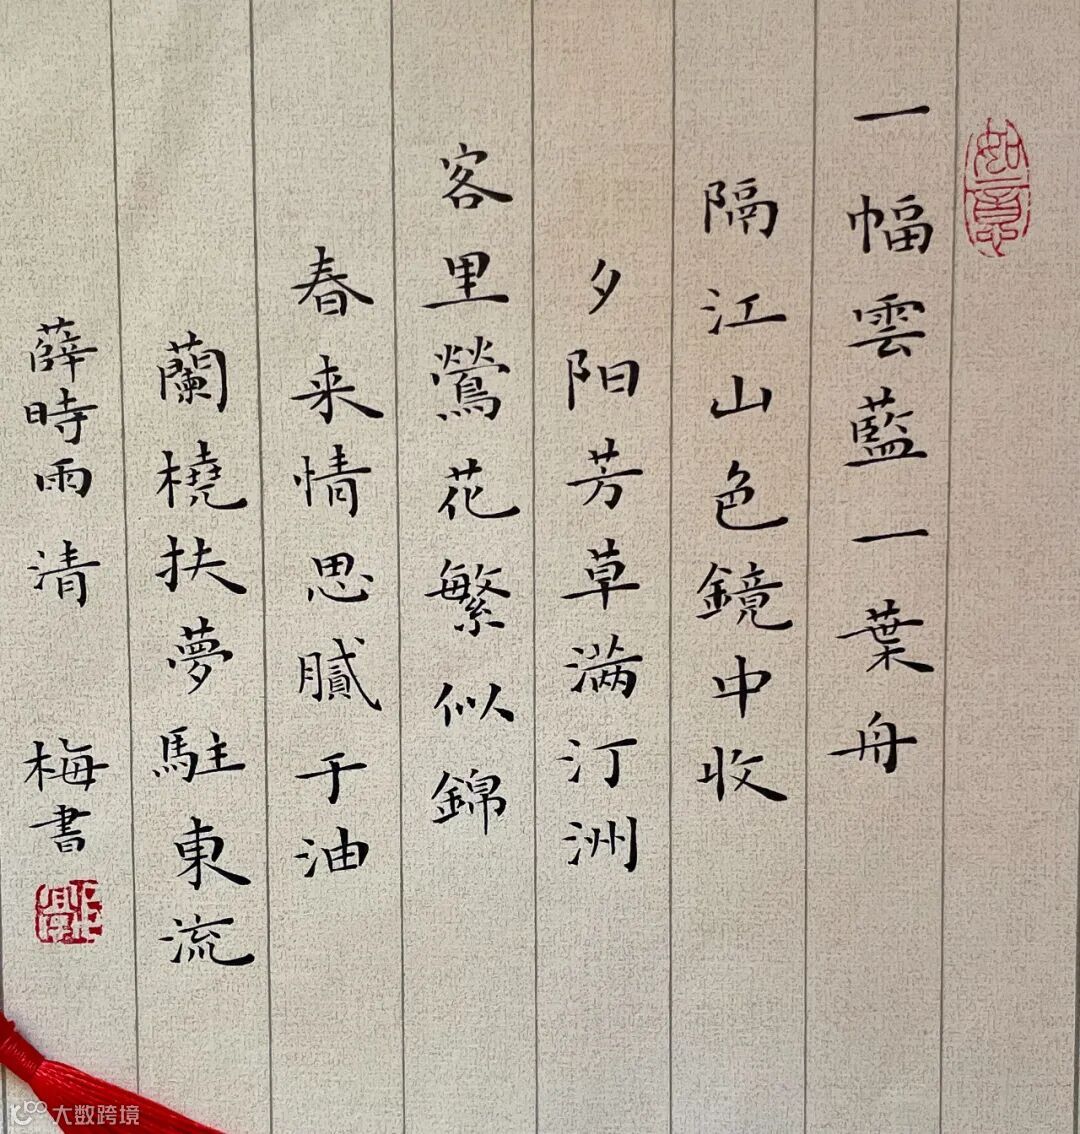 如意
一幅雲藍一葉舟
隔江山色鏡中收
夕阳芳草满汀洲
客里鶯花繁似錦
春来情思膩于油
蘭橈扶夢駐東流
薛時雨清 梅書
大数跨境